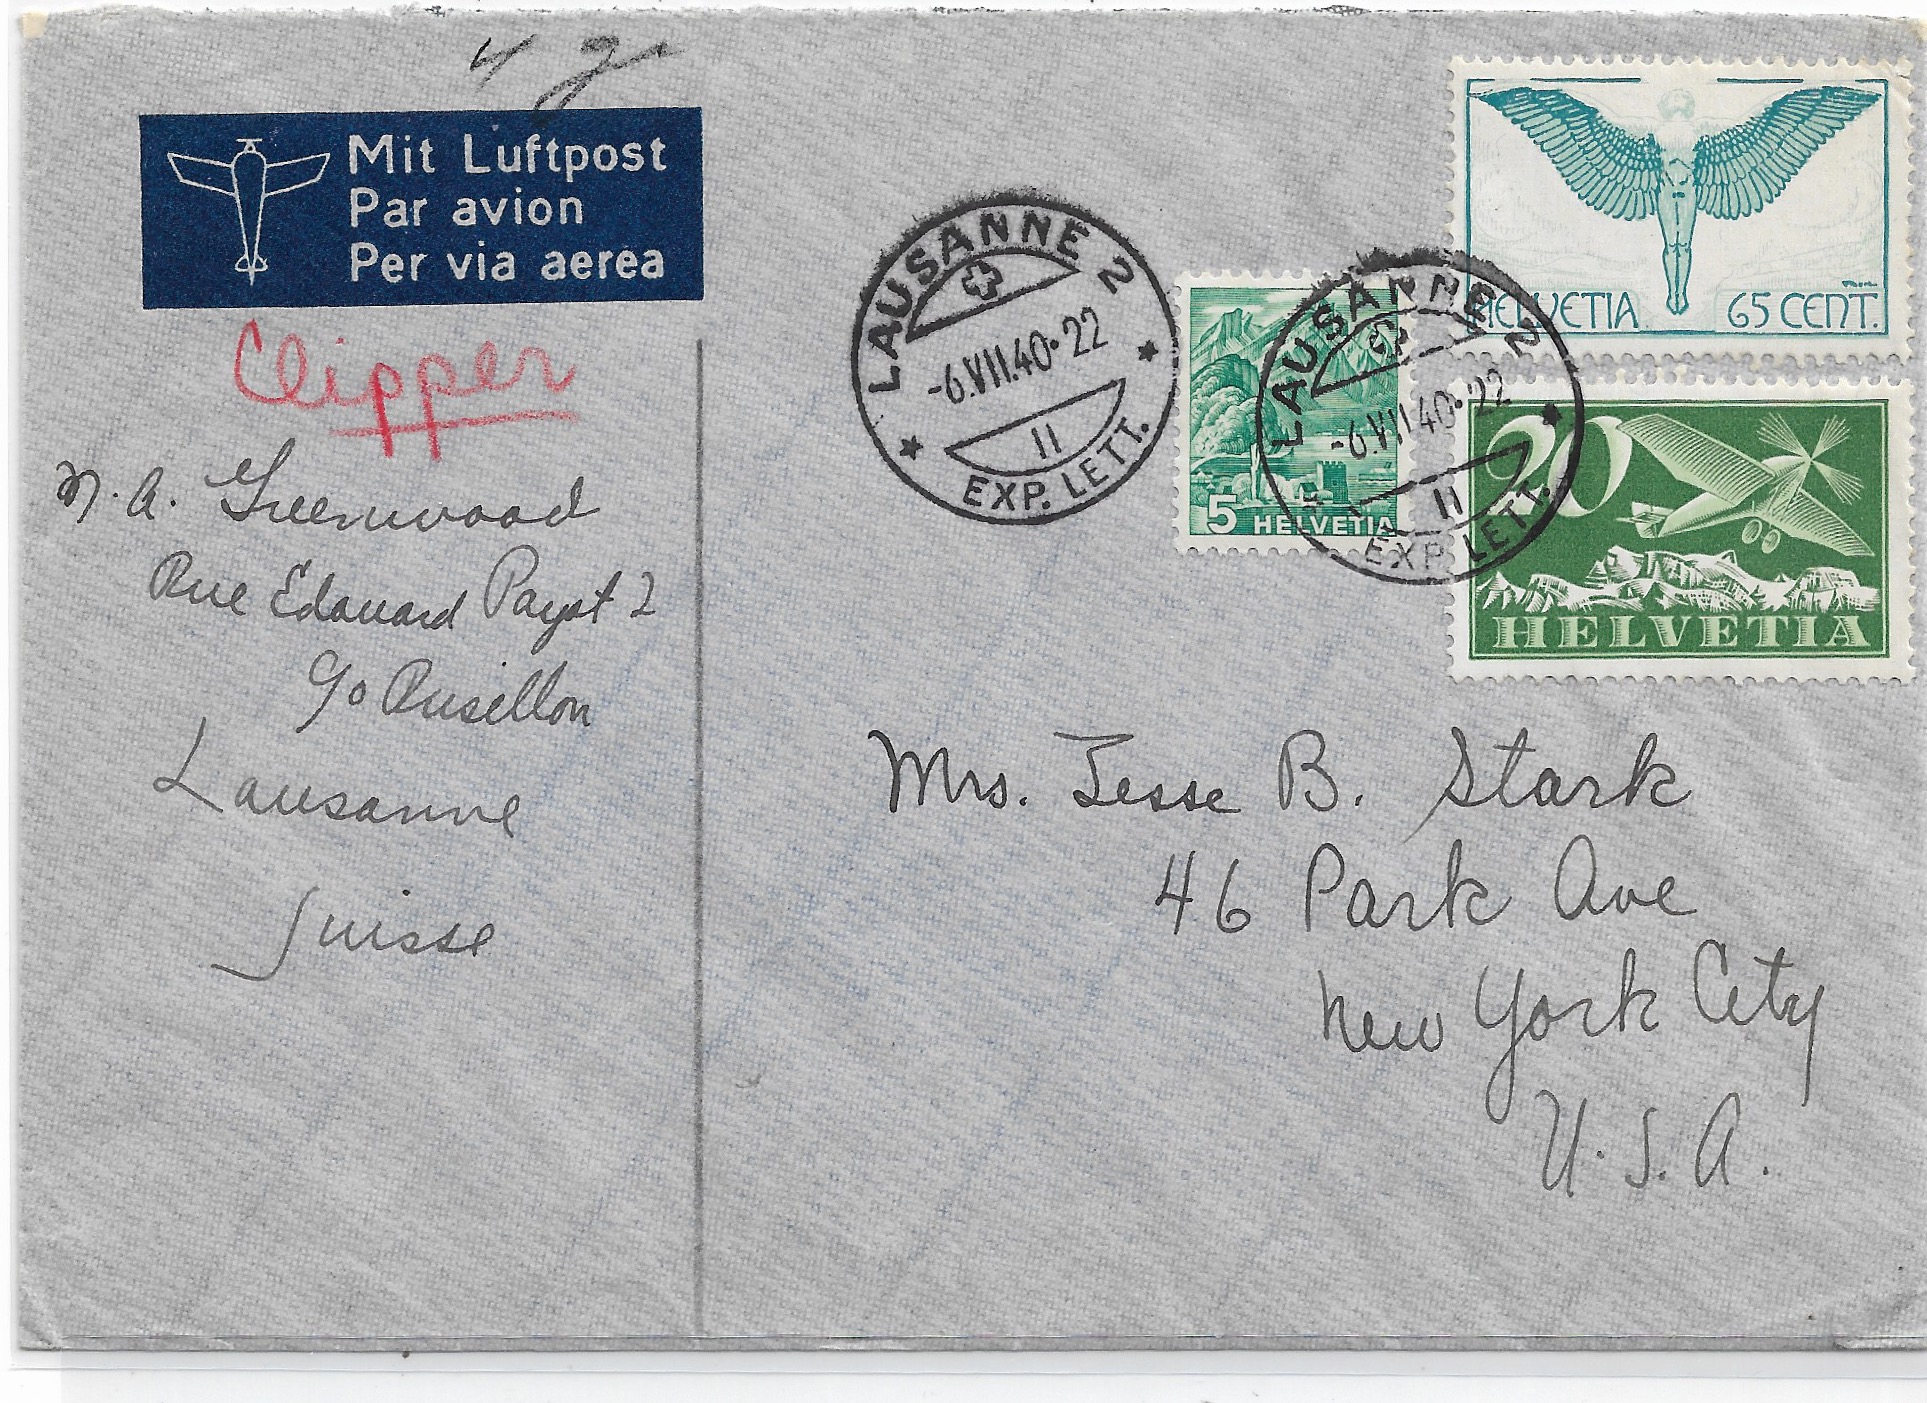 Mit Luftpost
Par avion
Per via aerea
Clipper
N. A. Greenwood
Rue Edouard Payot 2
c/o Rusillon
Lausanne
Suisse
LAUSANNE 2
-6.VII.40•22
II
EXP. LETT.
HELVETIA 65 CENT.
5 HELVETIA
LAUSANNE 2
-6.VII.40•22
II
EXP. LETT.
20
HELVETIA
Mrs. Jesse B. Stark
46 Park Ave
New York City
U.S.A.